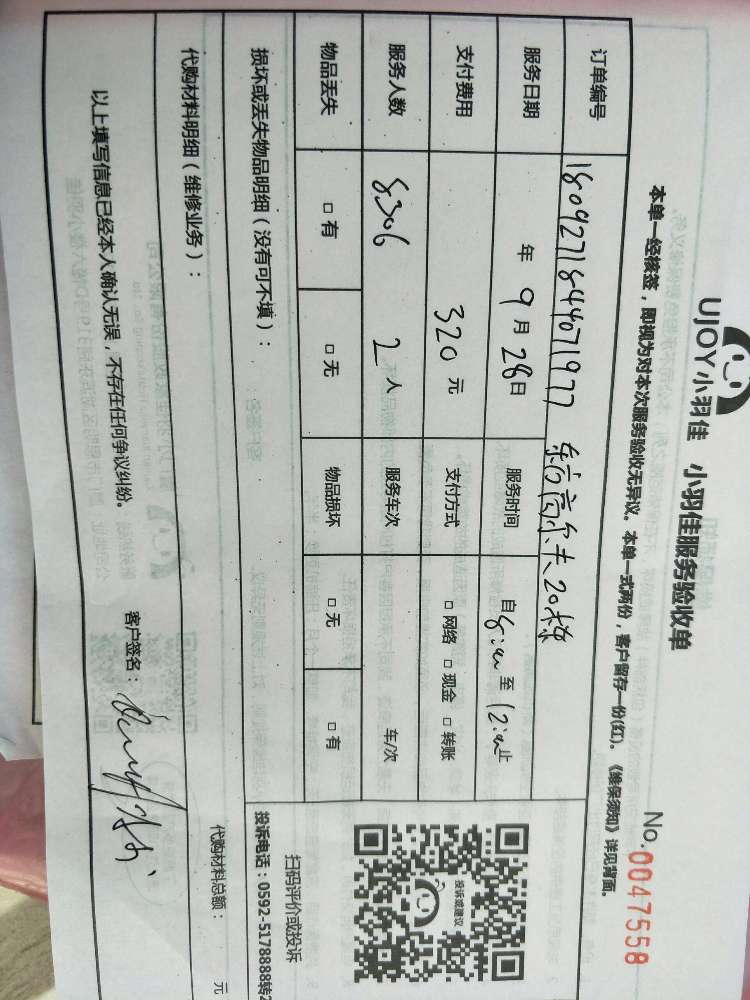 UJOY小羽佳 小羽佳服务验收单
No.0047558
本单一经核签，即视为对本次服务验收无异议。本单一式两份，客户留存一份(红)。《维保须知》详见背面。
订单编号 1809271844071977 东方高尔夫20栋
服务日期 年 9月28日 服务时间 自8:00至12:00止
支付费用 320元 支付方式 □网络 □现金 □转账
服务人数 8306 2人 服务车次 车/次
物品丢失 □有 □无 物品损坏 □无 □有
损坏或丢失物品明细（没有可不填）：
投诉或建议
扫码评价或投诉
投诉电话：0592-5178888转2
代购材料明细（维修业务）：
代购材料总额： 元
以上填写信息已经本人确认无误，不存在任何争议纠纷。
客户签名：